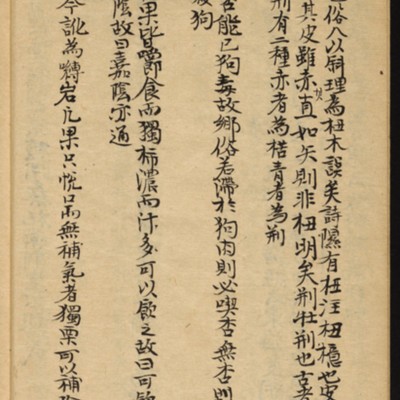 俗以斜理為杻木誤矣詩隰有杻注杻檍也安
其皮雖赤其直如矢則非杻明矣荆牡荆也古者
荆有二種赤者為楛青者為荆
杏能已狗毒故鄉俗若滯於狗肉則必喫杏無杏則
殺狗
果皆嚼食而獨柿濃而汁多可以飮之故曰可飮
陰故曰嘉陰亦通
今訛為轉岩凡果只悅口而無補氣者獨栗可以補